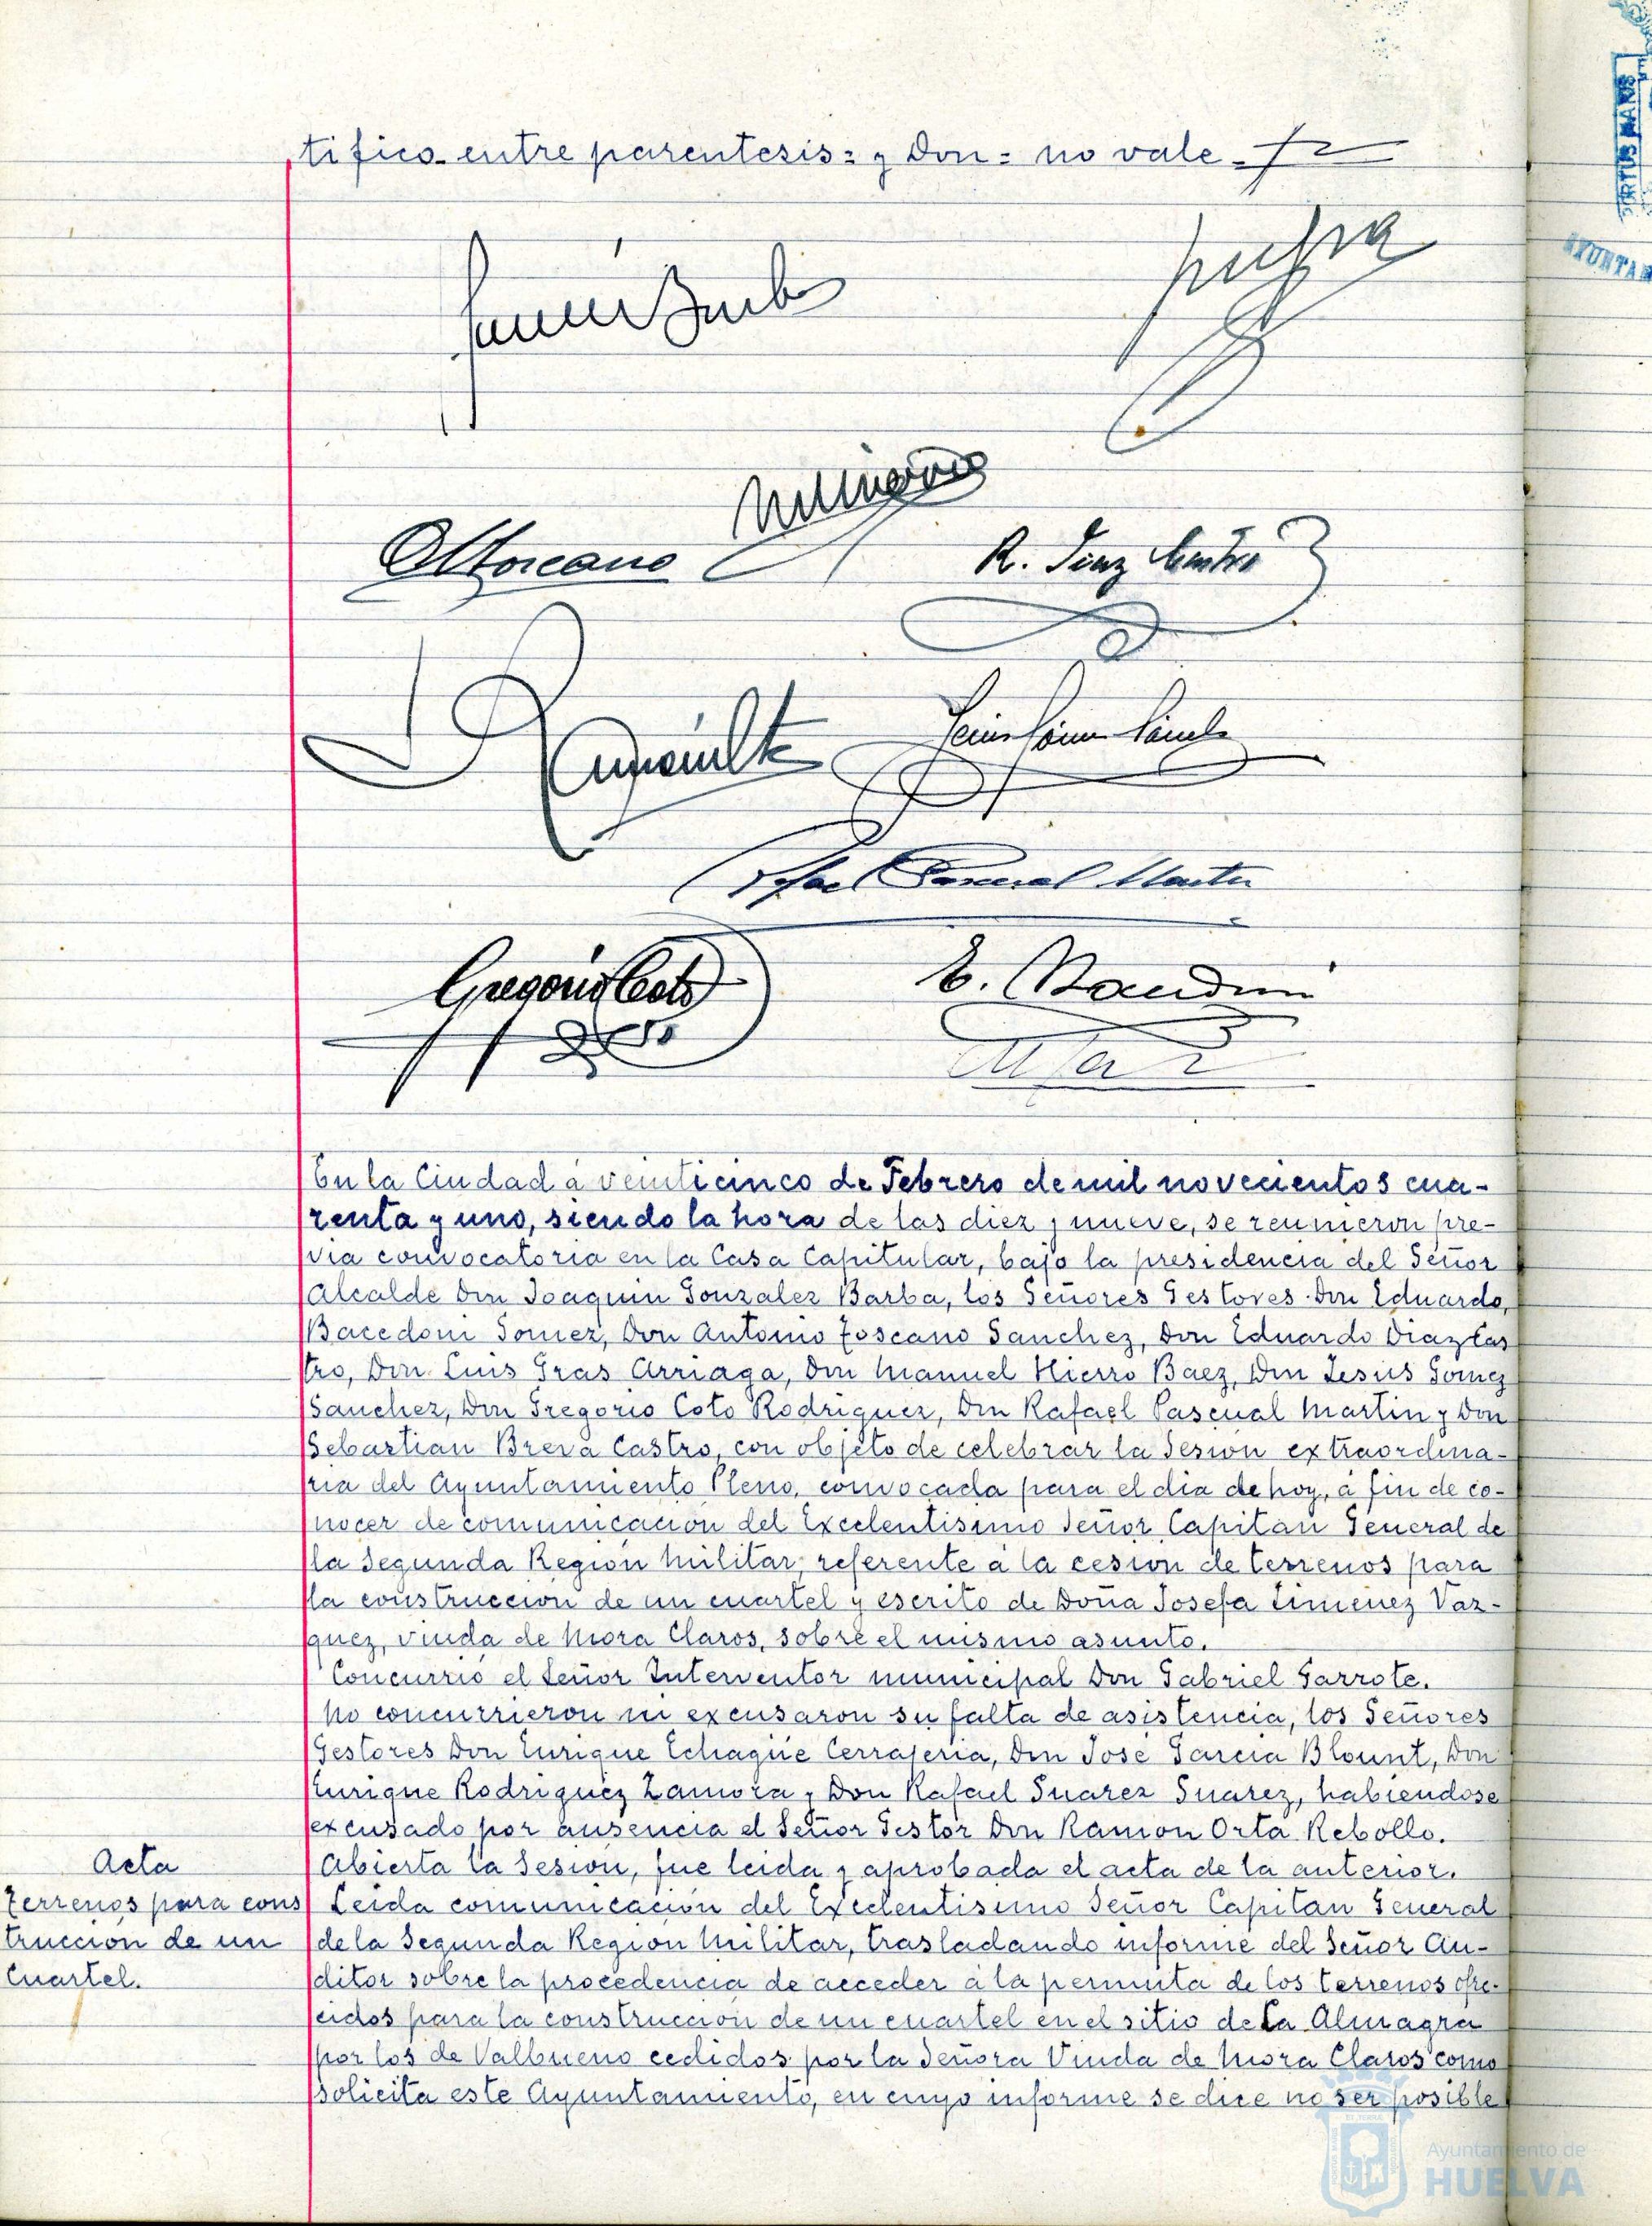 tifico- entre parentesis= y Don= no vale=
R. Diaz Castro
Rafael Pascual Martin
Gregorio Coto
E. Bacedoni
En la Ciudad á veinticinco de Febrero de mil novecientos cua-
renta y uno, siendo la hora de las diez y nueve, se reunieron pre-
via convocatoria en la Casa Capitular, bajo la presidencia del Señor
Alcalde Don Joaquin Gonzalez Barba, los Señores Gestores Don Eduardo
Bacedoni Gomez, Don Antonio Toscano Sanchez, Don Eduardo Diaz Cas
tro, Don Luis Gras Arriaga, Don Manuel Hierro Baez, Don Jesús Gomez
Sanchez, Don Gregorio Coto Rodriguez, Don Rafael Pascual Martin y Don
Sebastian Breva Castro, con objeto de celebrar la Sesión extraordina-
ria del Ayuntamiento Pleno, convocada para el dia de hoy, á fin de co-
nocer de comunicación del Excelentisimo Señor Capitán General de
la Segunda Región Militar, referente á la cesión de terrenos para
la construcción de un cuartel y escrito de Doña Josefa Jimenez Vaz-
quez, viuda de Mora Claros, sobre el mismo asunto.
Concurrió el Señor Interventor municipal Don Gabriel Garrote.
No concurrieron ni excusaron su falta de asistencia, los Señores
Gestores Don Enrique Echagüe Cerrajeria, Don José Garcia Blount, Don
Enrique Rodriguez Zamora y Don Rafael Suarez Suarez, habiendose
excusado por ausencia el Señor Gestor Don Ramon Orta Rebollo.
Acta
Abierta la Sesión, fue leida y aprobada el acta de la anterior.
Terrenos para cons
trucción de un
Cuartel.
Leida comunicación del Excelentisimo Señor Capitan General
de la Segunda Región Militar, trasladando informe del Señor Au-
ditor sobre la procedencia de acceder á la permuta de los terrenos ofre-
cidos para la construcción de un cuartel en el sitio de La Almagra
por los de Valbueno cedidos por la Señora Viuda de Mora Claros como
solicita este Ayuntamiento, en cuyo informe se dice no ser posible
Ayuntamiento de
HUELVA